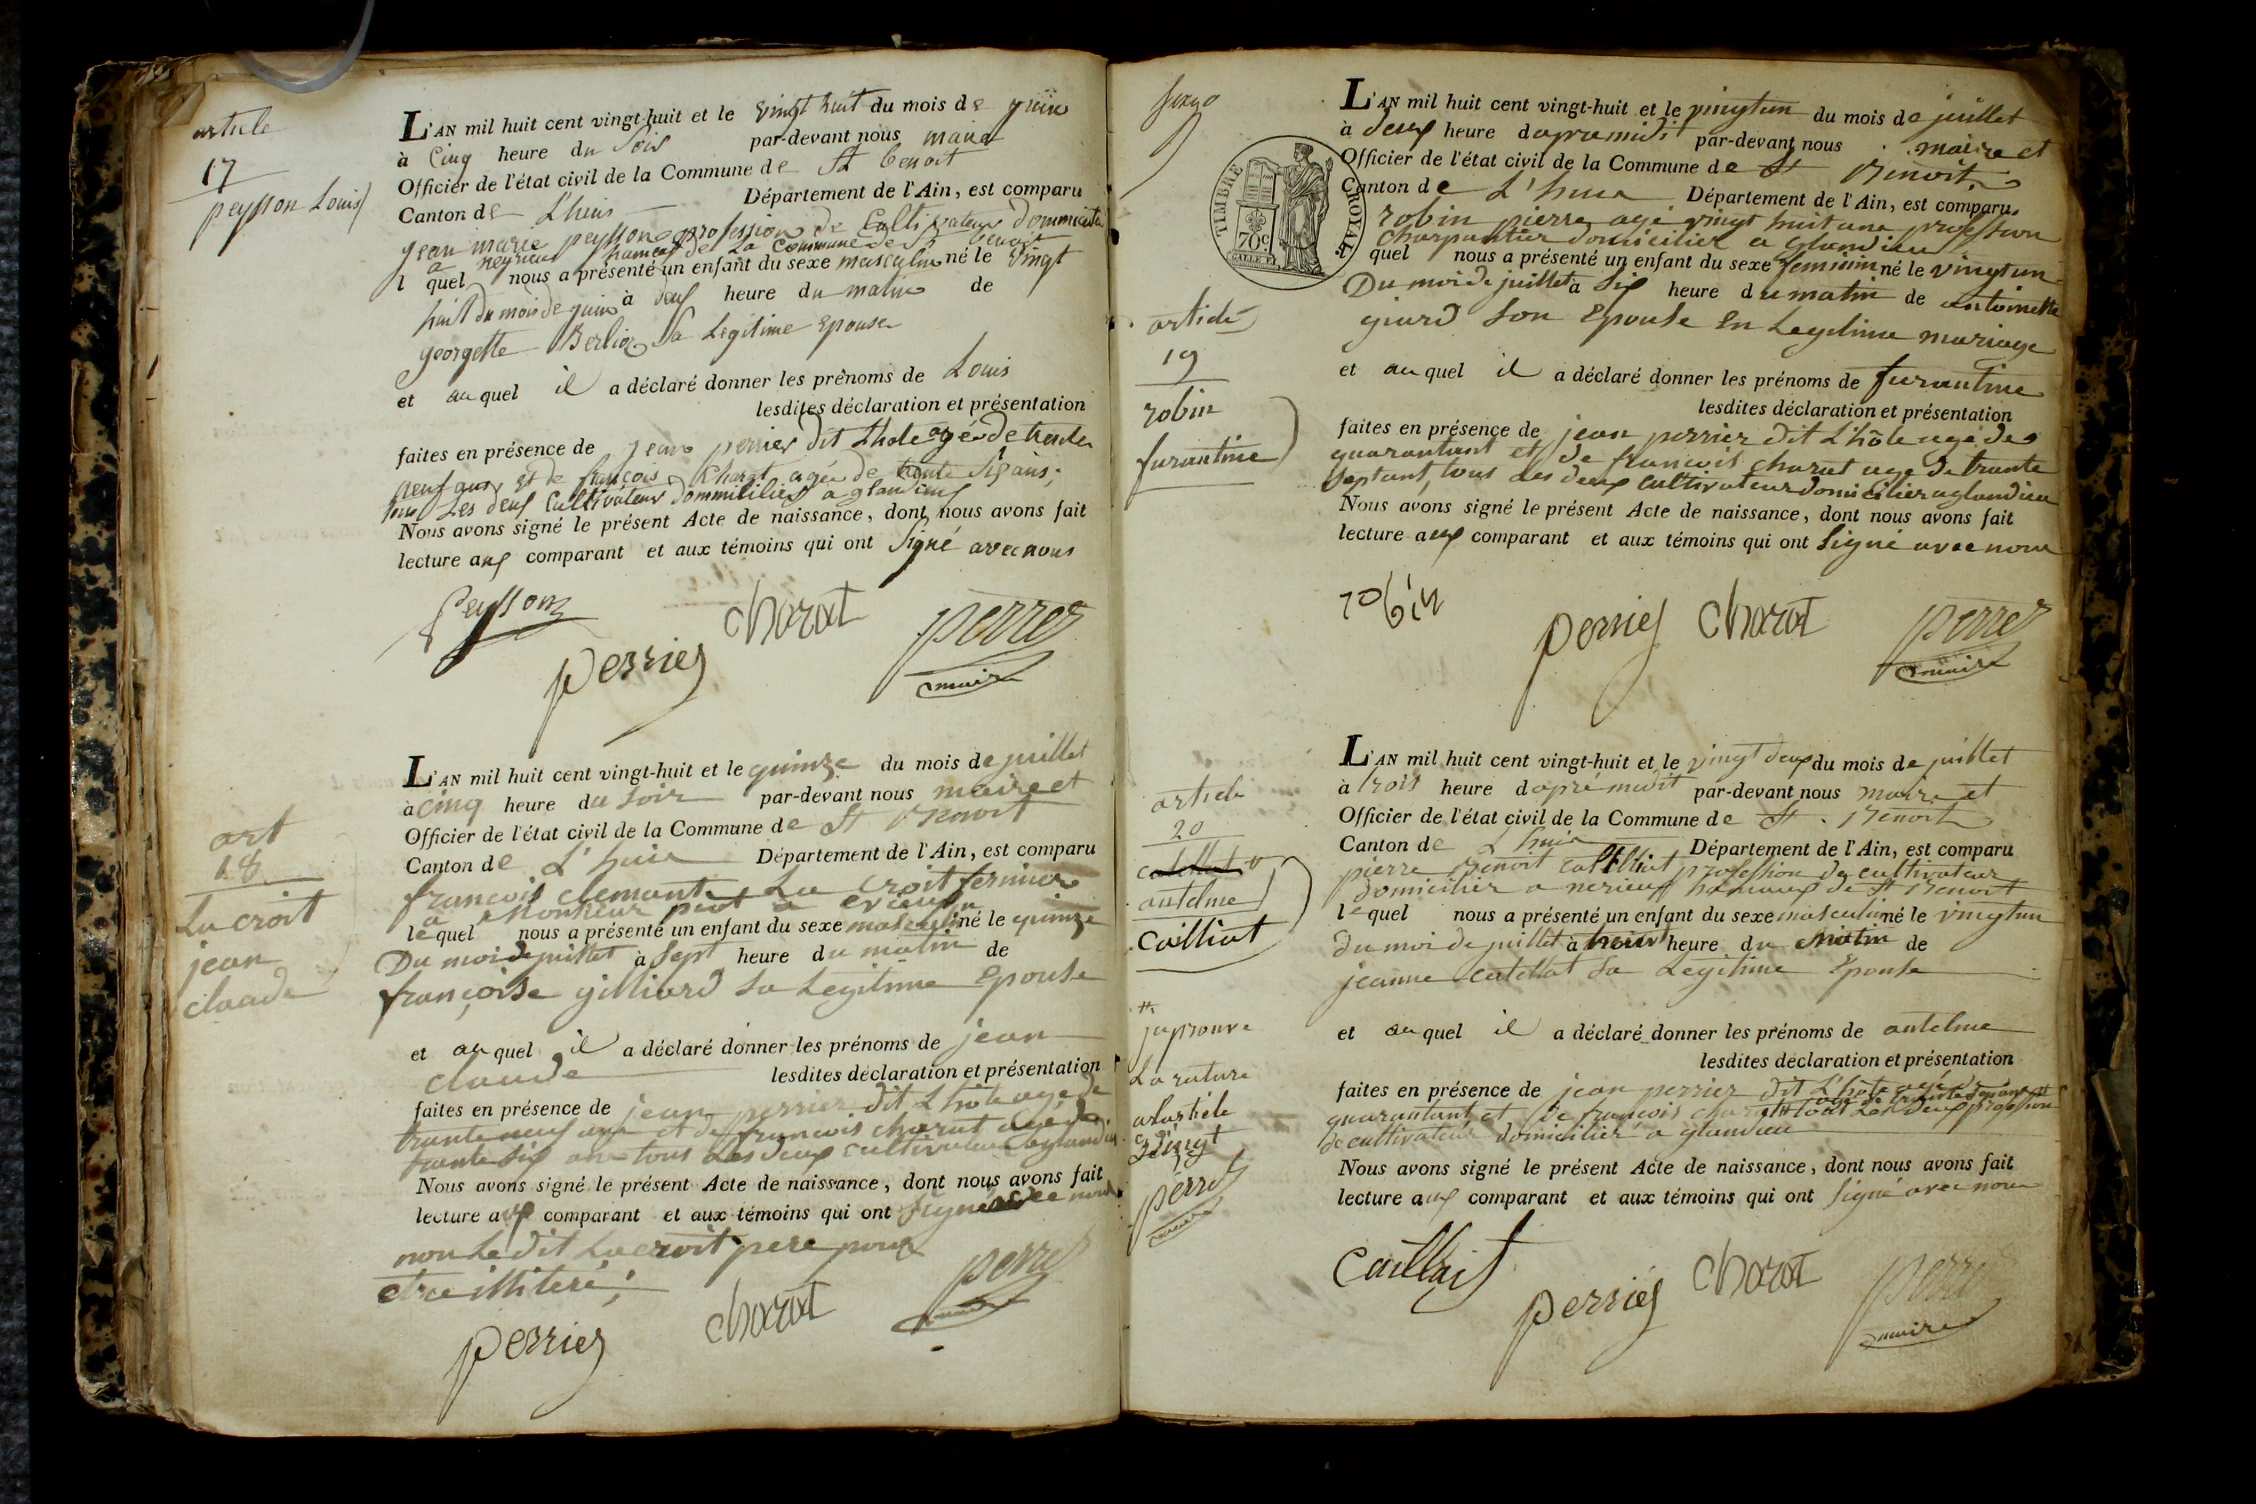 article
17
peysson Louis
L'AN mil huit cent vingt-huit et le vingt huit du mois de juin
à Cinq heure du Soir par-devant nous maire
Officier de l'état civil de la Commune de St benoit
Canton de L'huis Département de l'Ain, est comparu
jean marie peysson profession de Cultivateur dommicilié
a neyrieu hameau de La Commune de St benoit
l quel nous a présenté un enfant du sexe masculin né le vingt
huit du mois de juin à deux heure du matin de
georgette Berlioz Sa Legitime Epouse
et auquel il a déclaré donner les prénoms de Louis
lesdites déclaration et présentation
faites en présence de jean perrier dit Lhote agé de trente
neuf ans et de françois Charat agée de trente Six ans,
tous Les deux Cultivateur dommiciliés a glandieu
Nous avons signé le présent Acte de naissance, dont nous avons fait
lecture aux comparant et aux témoins qui ont Signé avec nous
Peysson
charat
perrier
perret
maire
art
18
La croit
jean
claude
L'AN mil huit cent vingt-huit et le quinze du mois de juillet
à cinq heure du soir par-devant nous maire et
Officier de l'état civil de la Commune de St Benoit
Canton de L'huis Département de l'Ain, est comparu
francois clemant La croit fermier
a Monsieur piot a evieu
le quel nous a présenté un enfant du sexe masculin né le quinze
Du moi de juillet à Sept heure du matin de
françoise gilliard Sa Legitime Epouse
et auquel il a déclaré donner les prénoms de jean
claude lesdites déclaration et présentation
faites en présence de jean perrier dit L'hôte agé de
trante neuf ans et de francois charat agé de
trante Six ans tous Les deux cultivateur a glandieu
Nous avons signé le présent Acte de naissance, dont nous avons fait
lecture aux comparant et aux témoins qui ont Signé avec nous
non Le dit Lacroit pere pour
etre illiteré;
perrier
charat
perret
maire
TIMBRE ROYAL
70 c.
article
19
robin
furantine
L'AN mil huit cent vingt-huit et le vingtun du mois de juillet
à deux heure d apremidit par-devant nous maire et
Officier de l'état civil de la Commune de St Benoit
Canton de L'huis Département de l'Ain, est comparu
robin pierre agé vingt huit ans profession
charpantier domicilier a glandieu
quel nous a présenté un enfant du sexe feminin né le vingtun
Du moi de juillet à Six heure du matin de antoinette
giard Son Epouse En Legitime mariage
et auquel il a déclaré donner les prénoms de furantine
lesdites déclaration et présentation
faites en présence de jean perrier dit L'hôte agé de
quarantant et de francois charat agé de trante
Septant, tous Les deux cultivateur domicilier a glandieu
Nous avons signé le présent Acte de naissance, dont nous avons fait
lecture aux comparant et aux témoins qui ont Signé avec nous
robin
perrier charat
perret
maire
article
20
antelme
Cailliat
japrouve
La rature
alarticle
vingt
perret
maire
L'AN mil huit cent vingt-huit et le vingt deux du mois de juillet
à trois heure d aprémidit par-devant nous maire et
Officier de l'état civil de la Commune de St Benoit
Canton de L'huis Département de l'Ain, est comparu
pierre Benoit Cailliat profession de cultivateur
domicilier a nerieux hameaux de St Benoit
le quel nous a présenté un enfant du sexe masculin né le vingtun
du moi de juillet à heure du Matin de
jeanne catellat Sa Legitime Epouse
et auquel il a déclaré donner les prénoms de antelme
lesdites déclaration et présentation
faites en présence de jean perrier dit L'hôte agé de
quarantant et de francois charat tous Les deux profession
de cultivateur domicilier a glandieu
Nous avons signé le présent Acte de naissance, dont nous avons fait
lecture aux comparant et aux témoins qui ont Signé avec nous
Caillat
perrier
charat
perret
maire